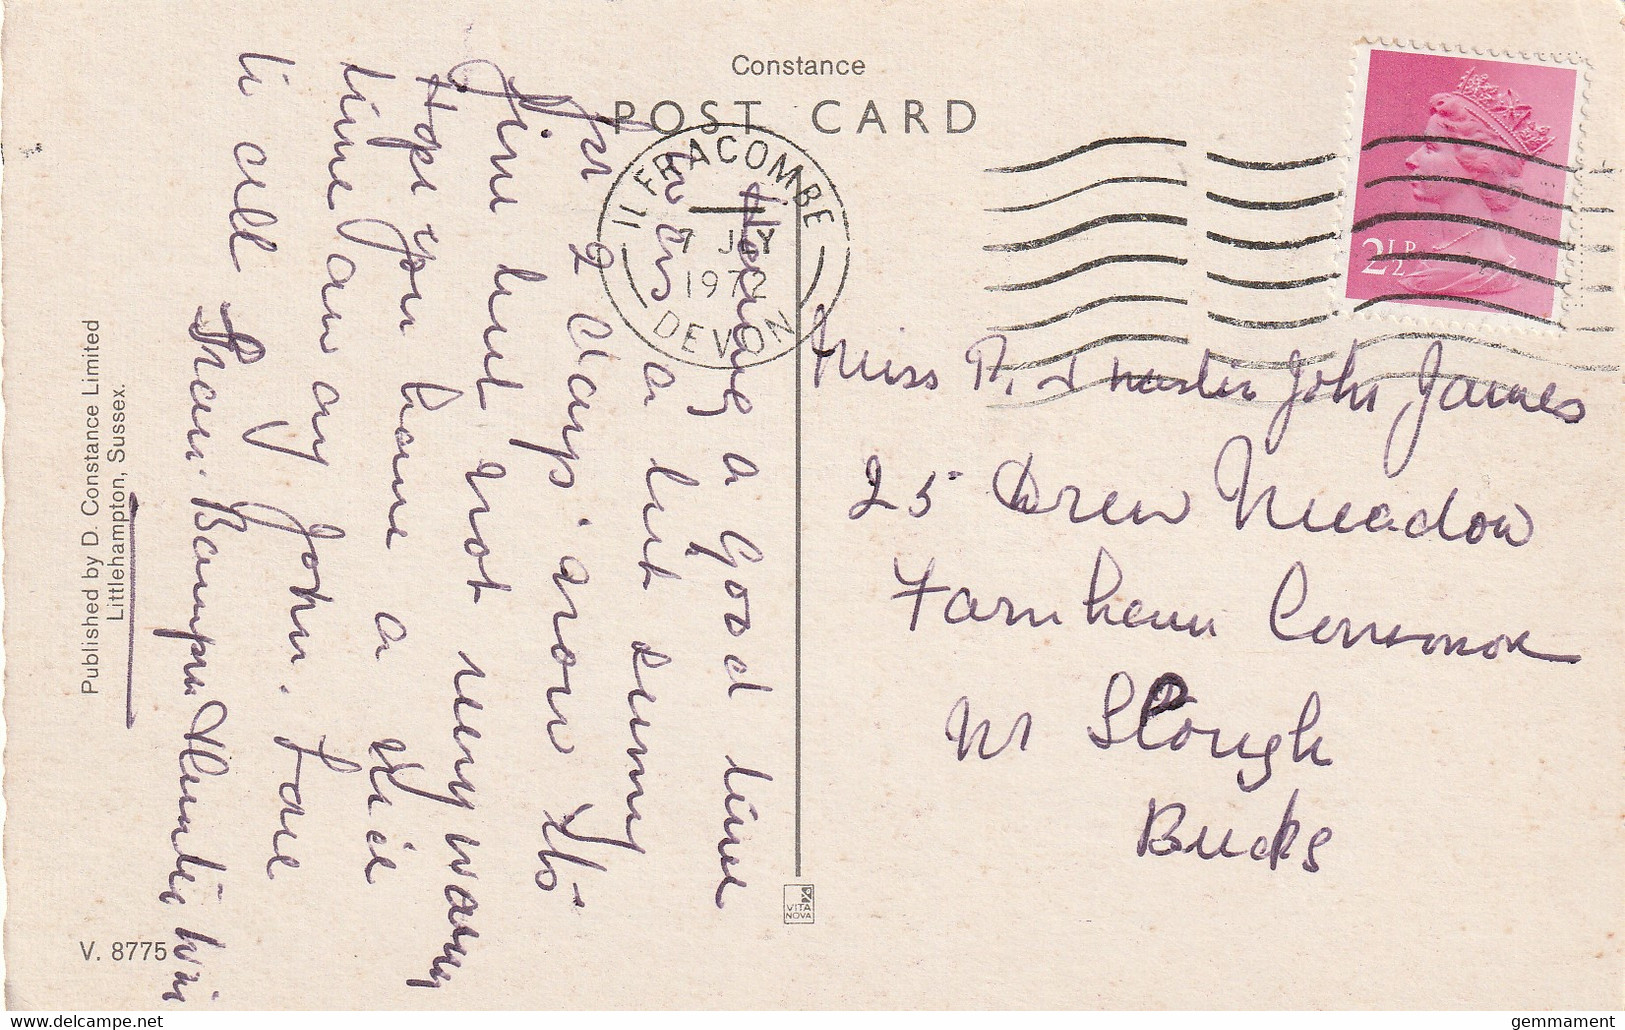 Constance
POST CARD
ILFRACOMBE
7 JLY
1972
DEVON
2½P
Having a Good time
was a bit sunny
for 2 days, now its
fine but not very warm
Hope you have a nice
time on ay John. Love
to all from Bampi
Miss P. & Master John James
25 Drew Meadow
Farnham Common
Nr Slough
Bucks
Published by D. Constance Limited
Littlehampton, Sussex.
V. 8775
VITA
NOVA
www.delcampe.net
gemmament